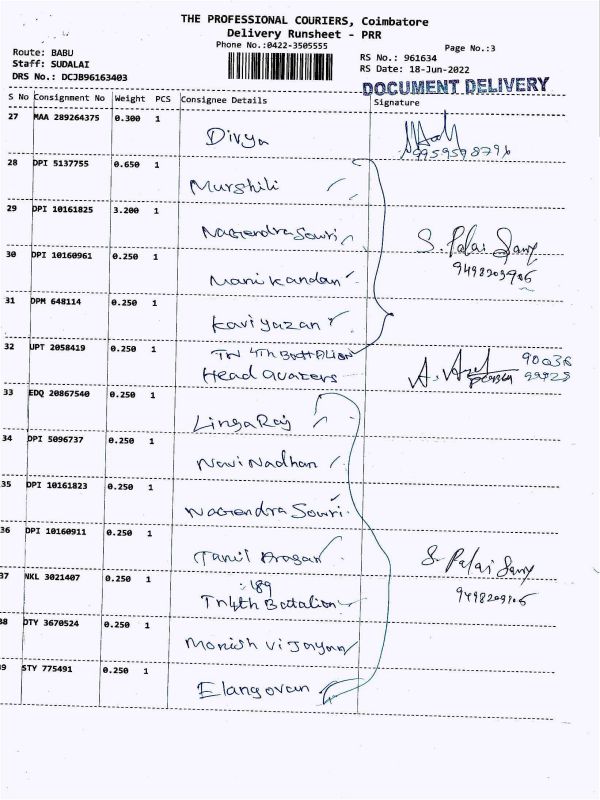 THE PROFESSIONAL COURIERS, Coimbatore
Delivery Runsheet - PRR
Phone No.:0422-3505555
Page No.:3
Route: BABU
Staff: SUDALAI
DRS No.: DCJB96163403
RS No.: 961634
RS Date: 18-Jun-2022
DOCUMENT DELIVERY
S No Consignment No Weight PCS Consignee Details Signature
27 MAA 289264375 0.300 1 Divya
28 DPI 5137755 0.650 1 Murshili
29 DPI 10161825 3.200 1 Nagendra Souri
30 DPI 10160961 0.250 1 Manikandan S. Palai Samy
31 DPM 648114 0.250 1 Kaviyazan
32 UPT 2058419 0.250 1 TN 4th Battalion
Head Quaters
33 EDQ 20867540 0.250 1 Linga Raj
34 DPI 5096737 0.250 1 Navi Nadhan
35 DPI 10161823 0.250 1 Nagendra Souri
36 DPI 10160911 0.250 1 Tamil S. Palai Samy
37 NKL 3021407 0.250 1 189
TN 4th Battalion
38 DTY 3670524 0.250 1 Monish Vijayan
39 STY 775491 0.250 1 Elangovan